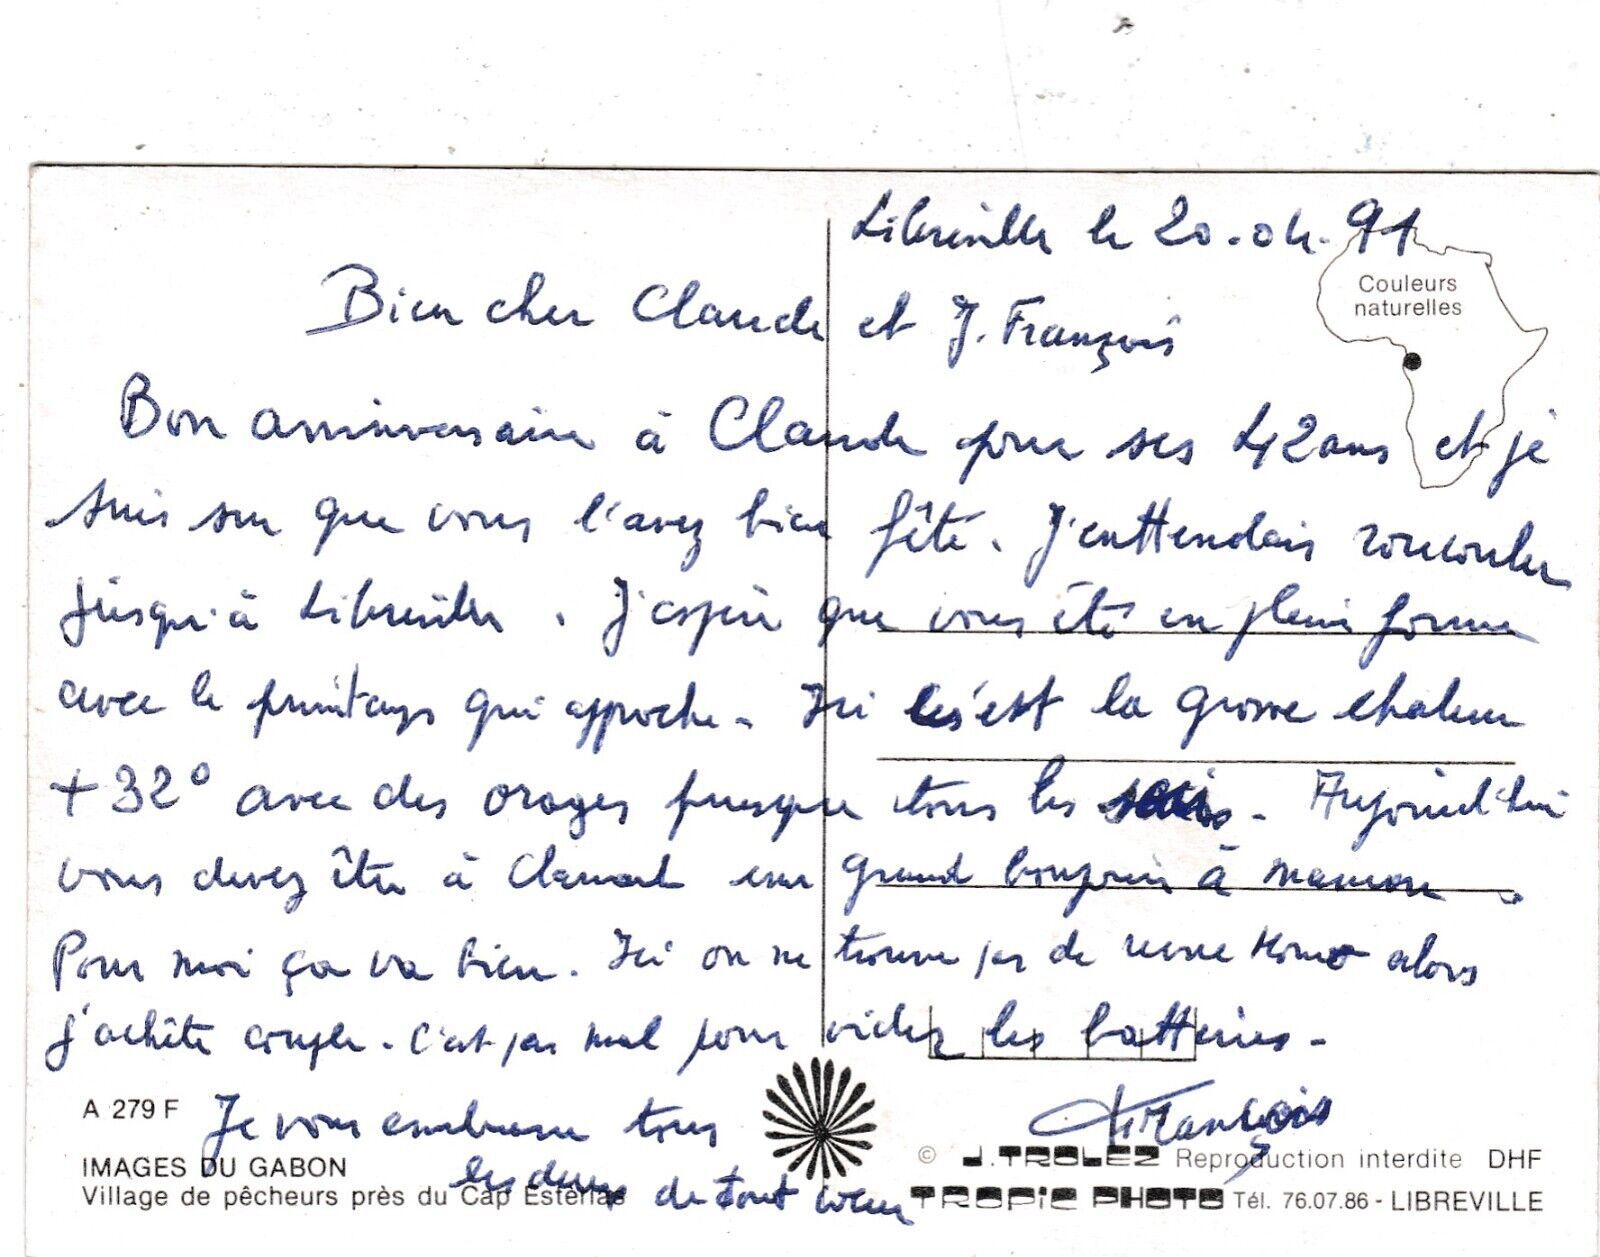 Libreville le 20.04.91
Couleurs
naturelles
Bien cher Claude et J. François
Bon anniversaire à Claude pour ses 42 ans et je
suis sur que vous l'avez bien fêté. J'enttendais roucouler
jusqu'à Libreville. J'espère que vous êtê en plein forme
avec le printemps qui approche. Ici c'est la grosse chaleur
+32° avec des orages presque tous les soirs. Aujourd'hui
vous devez être à Clamart un grand bonjour à maman.
Pour moi ça va bien. Ici on ne trouve pas de revue alors
j'achète couple. C'est pas mal pour vider les batteries.
Je vous embrasse tous
les deux de tout cœur
François
A 279 F
IMAGES DU GABON
Village de pêcheurs près du Cap Esterias
© J.TROLEZ Reproduction interdite DHF
TROPIC PHOTO Tél. 76.07.86 - LIBREVILLE